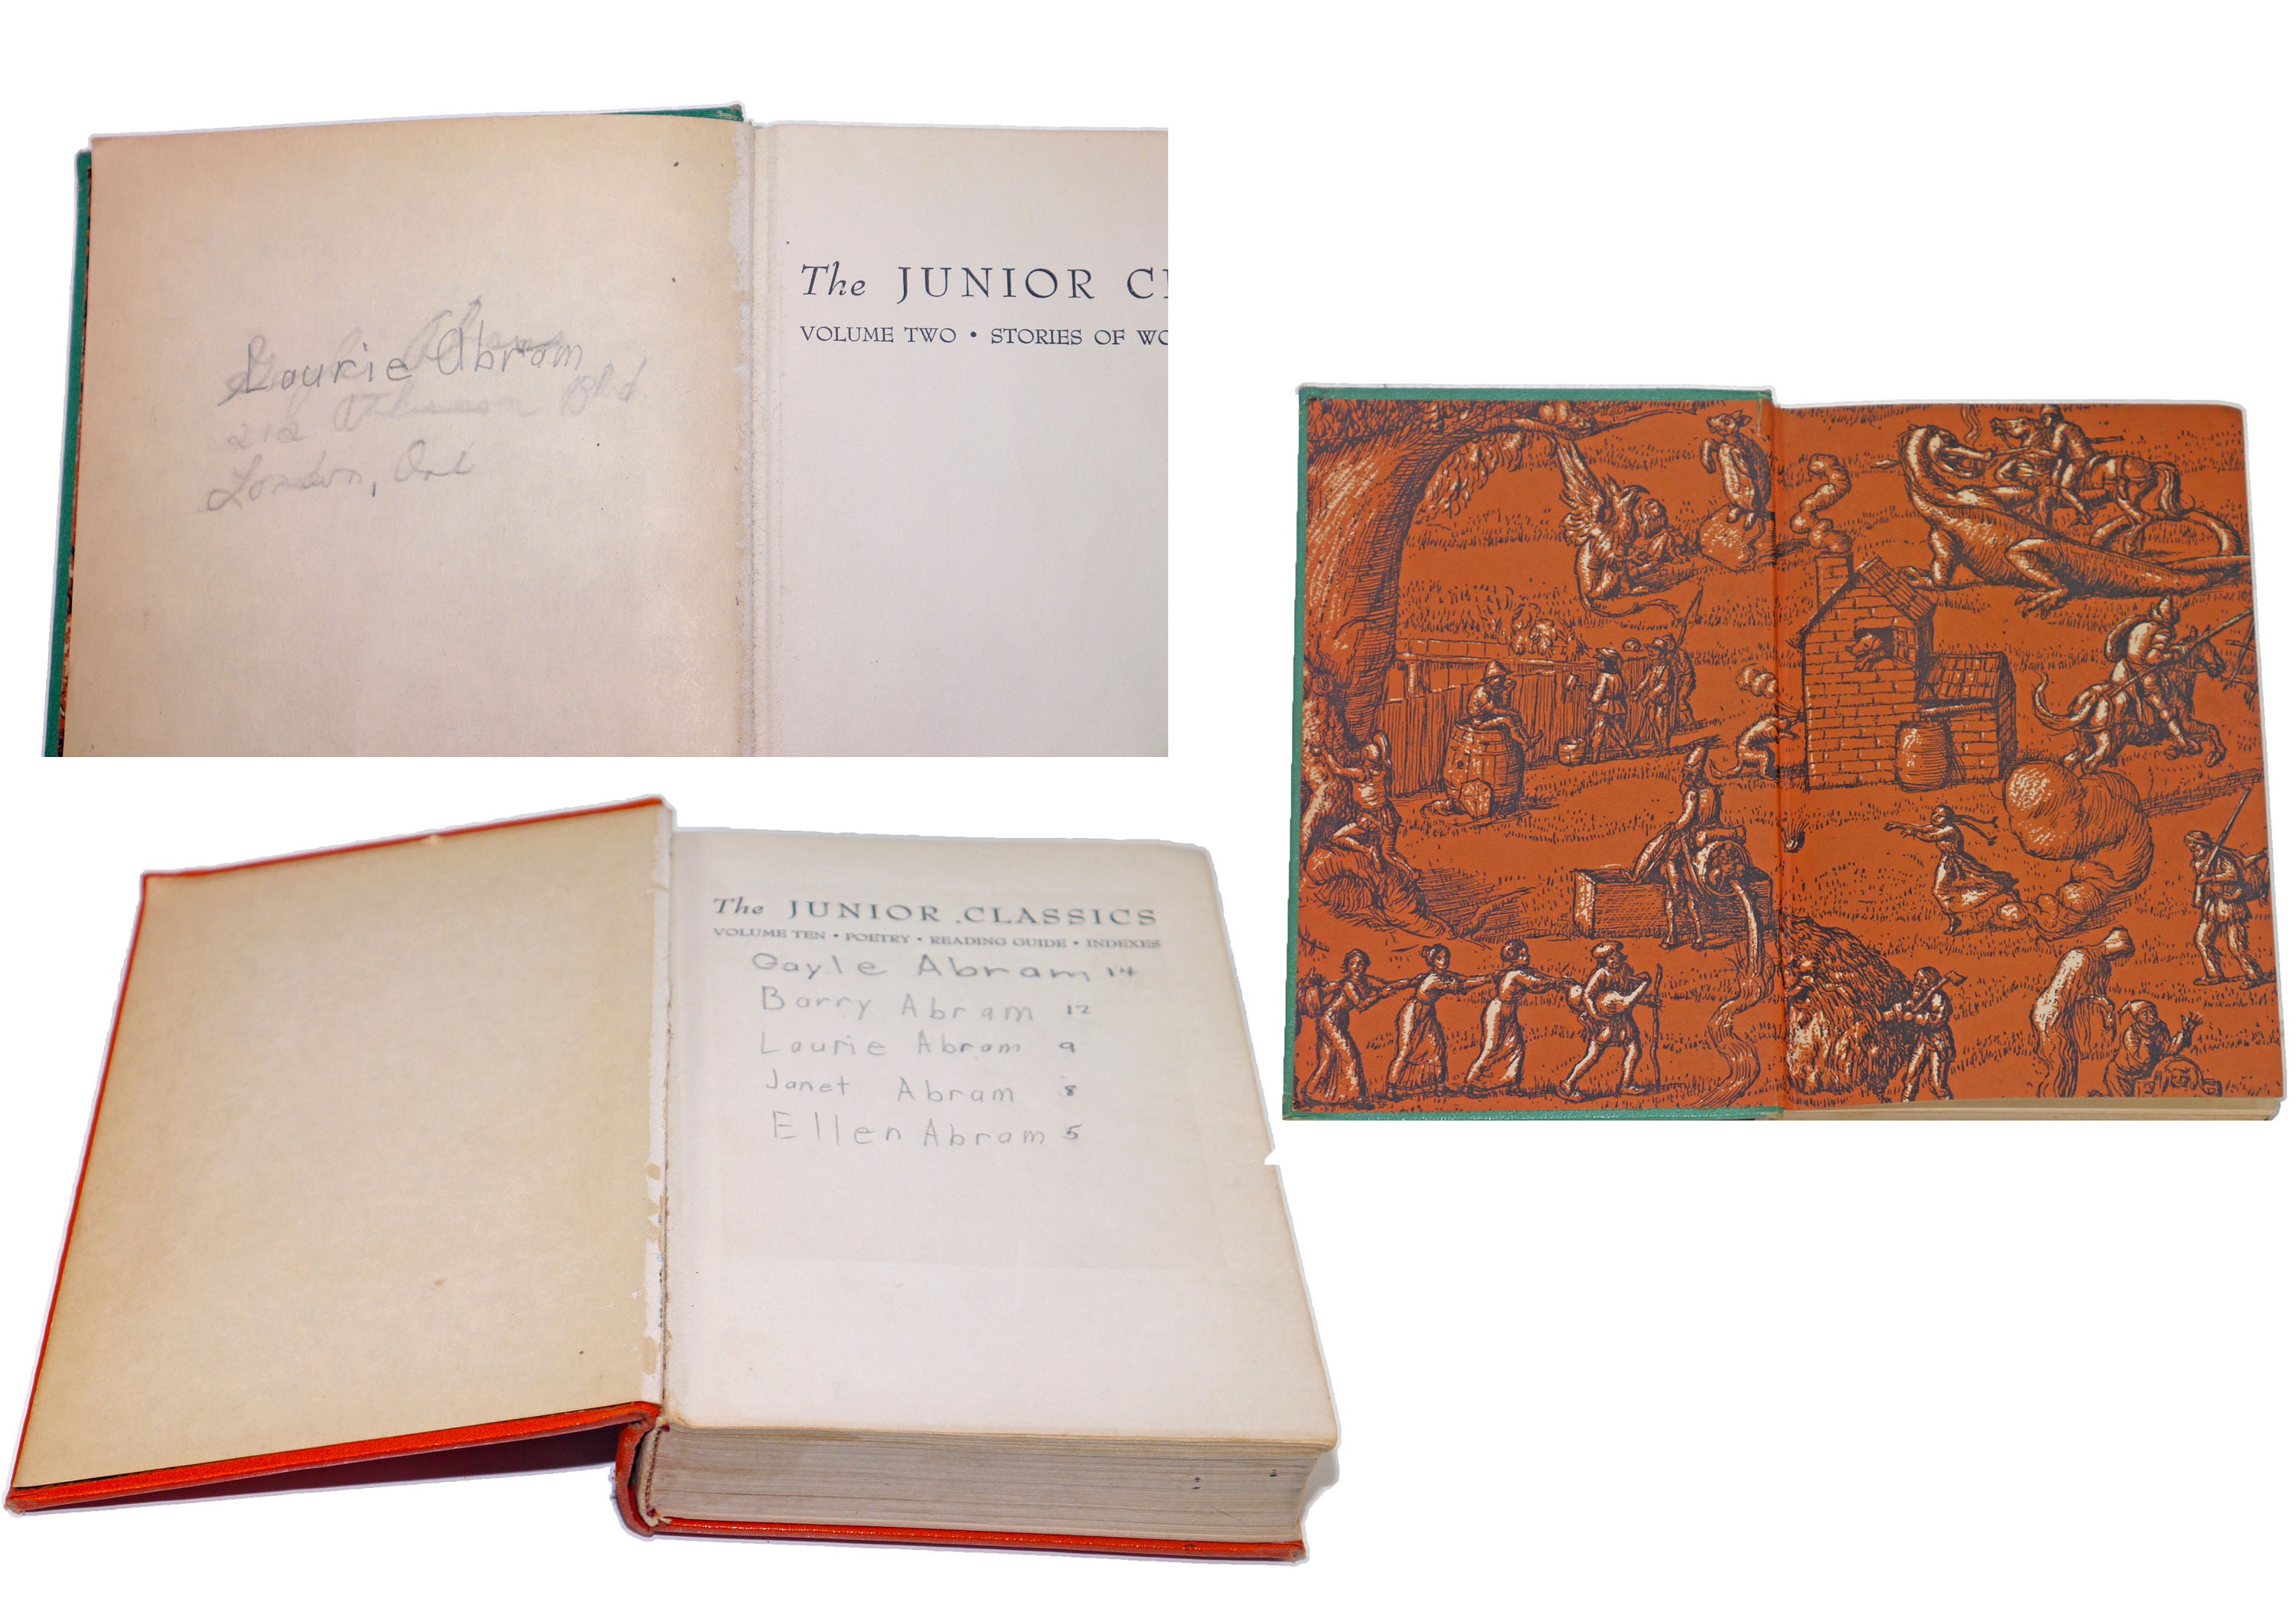 The JUNIOR
VOLUME TWO • STORIES OF
Laurie Abram
212
London, Ont
The JUNIOR CLASSICS
VOLUME TEN • POETRY • READING GUIDE • INDEXES
Gayle Abram 14
Barry Abram 12
Laurie Abram 9
Janet Abram 8
Ellen Abram 5